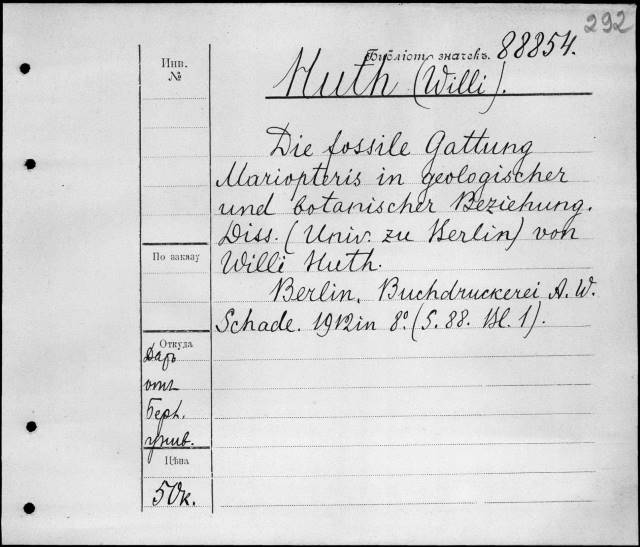 292
Библіот. значекъ. 88854.
Huth (Willi).
Инв.
№
Die fossile Gattung
Mariopteris in geologischer
und botanischer Beziehung.
Diss. (Univ. zu Berlin) von
Willi Huth.
Berlin, Buchdruckerei A. W.
Schade. 1912 in 8º. (S. 88. Bl. 1).
По заказу
Откуда
Даръ
отъ
Берл.
унив.
Цѣна
50к.